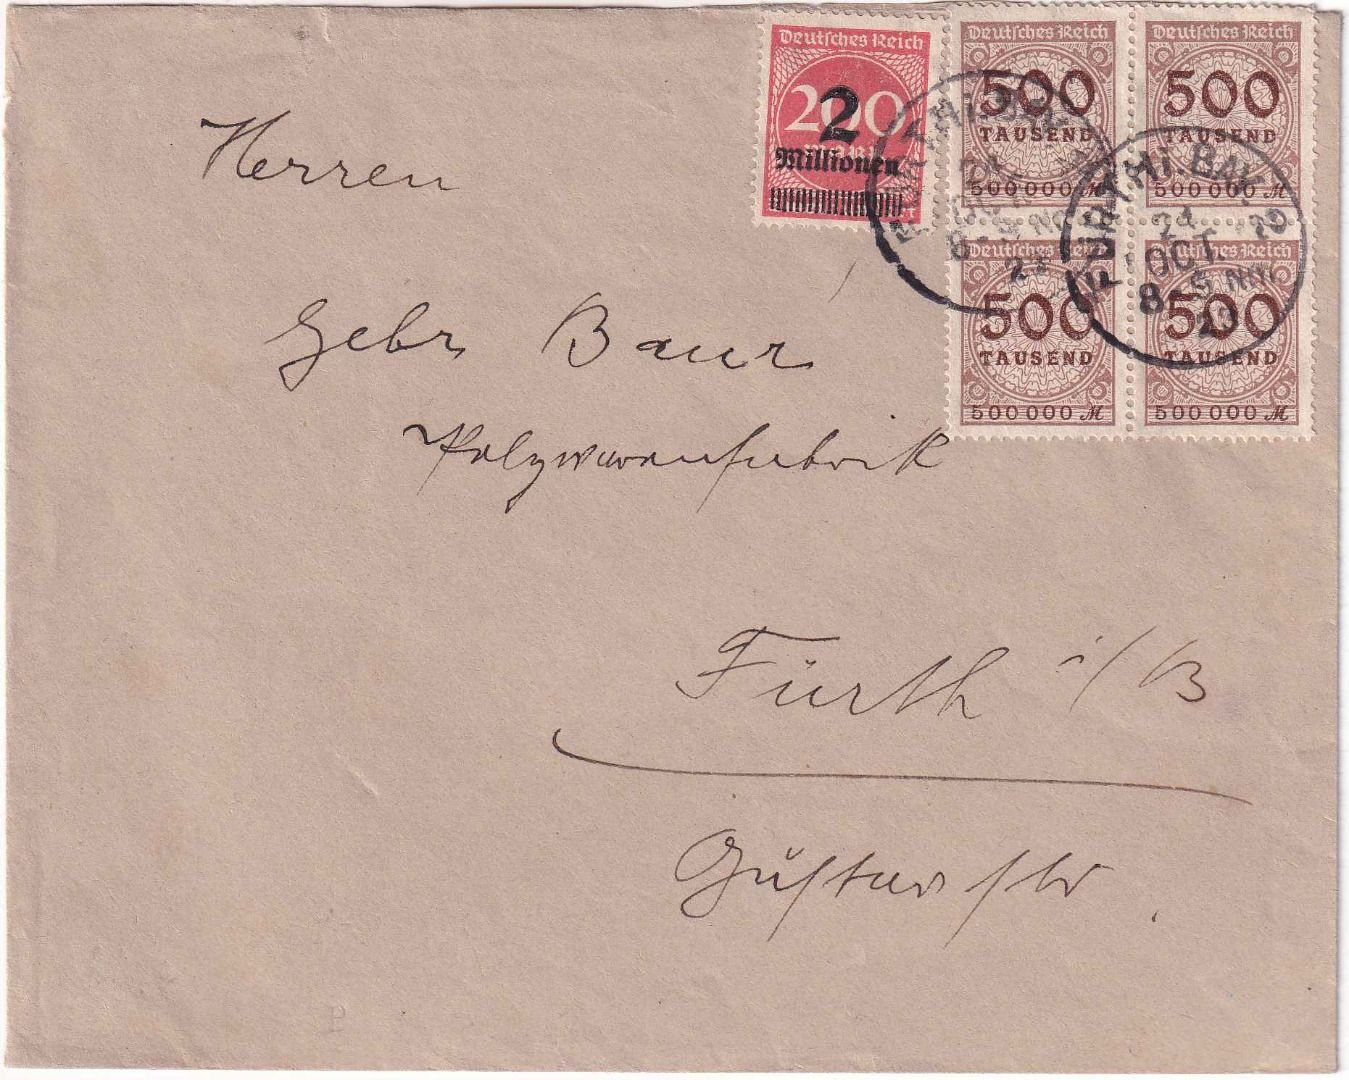 Deutsches Reich
200
MARK
2
Millionen
Deutsches Reich
500
TAUSEND
500000 M
Deutsches Reich
500
TAUSEND
500000 M
Deutsches Reich
500
TAUSEND
500000 M
Deutsches Reich
500
TAUSEND
500000 M
FÜRTH I. BAY. 2
24
OCT
8-9 NM.
23
Herren
Gebr. Baur
Pelzwarenfabrik
Fürth i/B
Gustavstr.